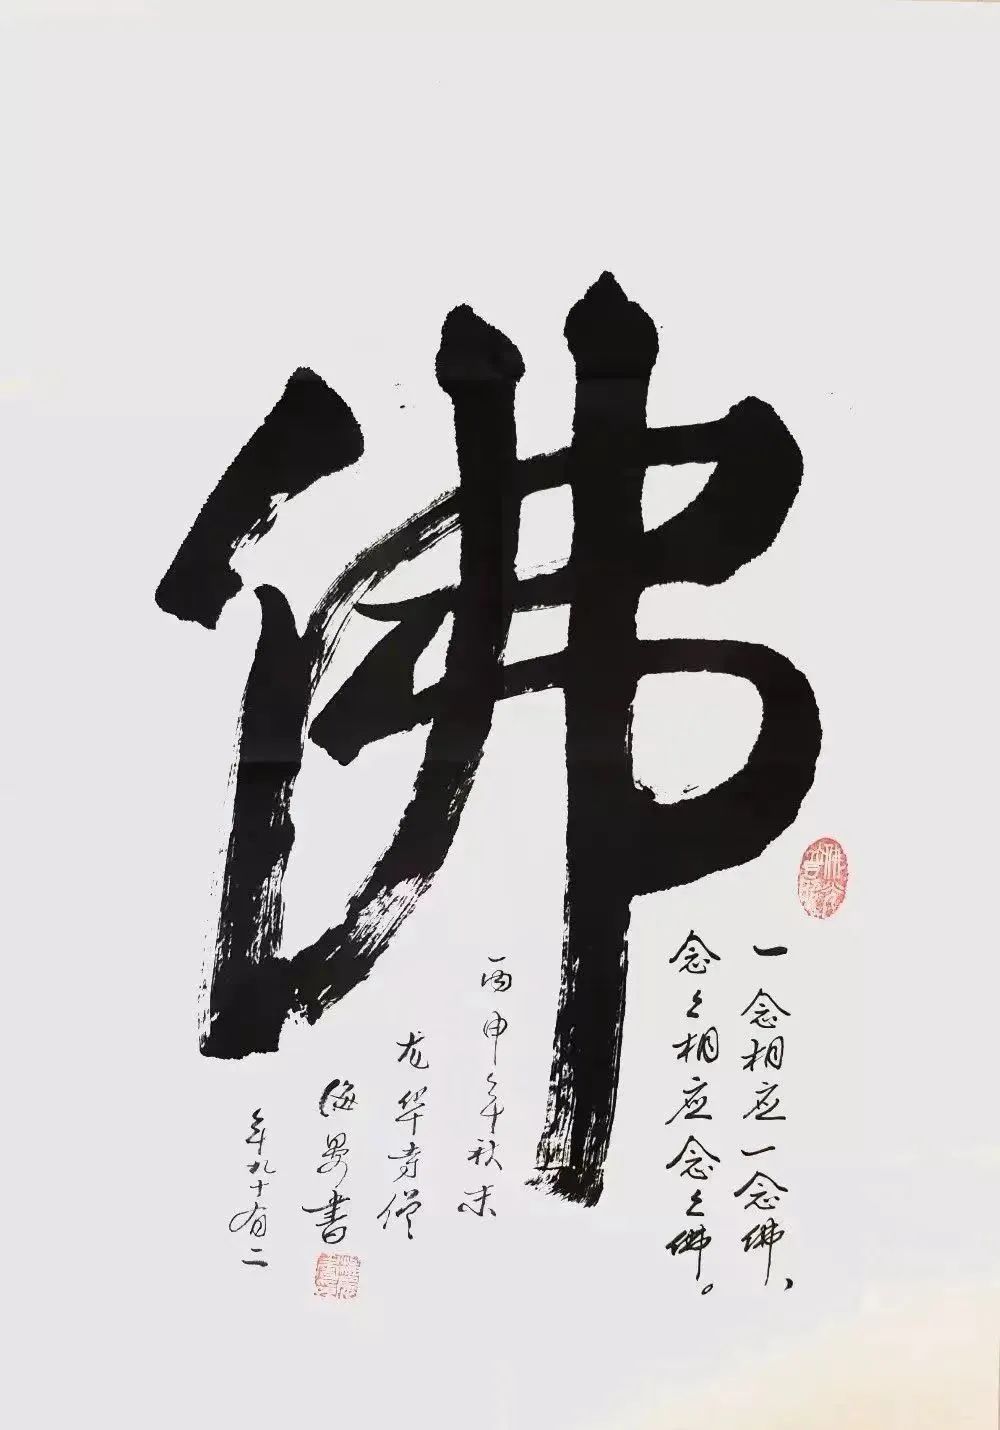 佛
一念相应一念佛、
念々相应念々佛。
丙申年秋末
龙华寺僧
海晏書
年九十有二